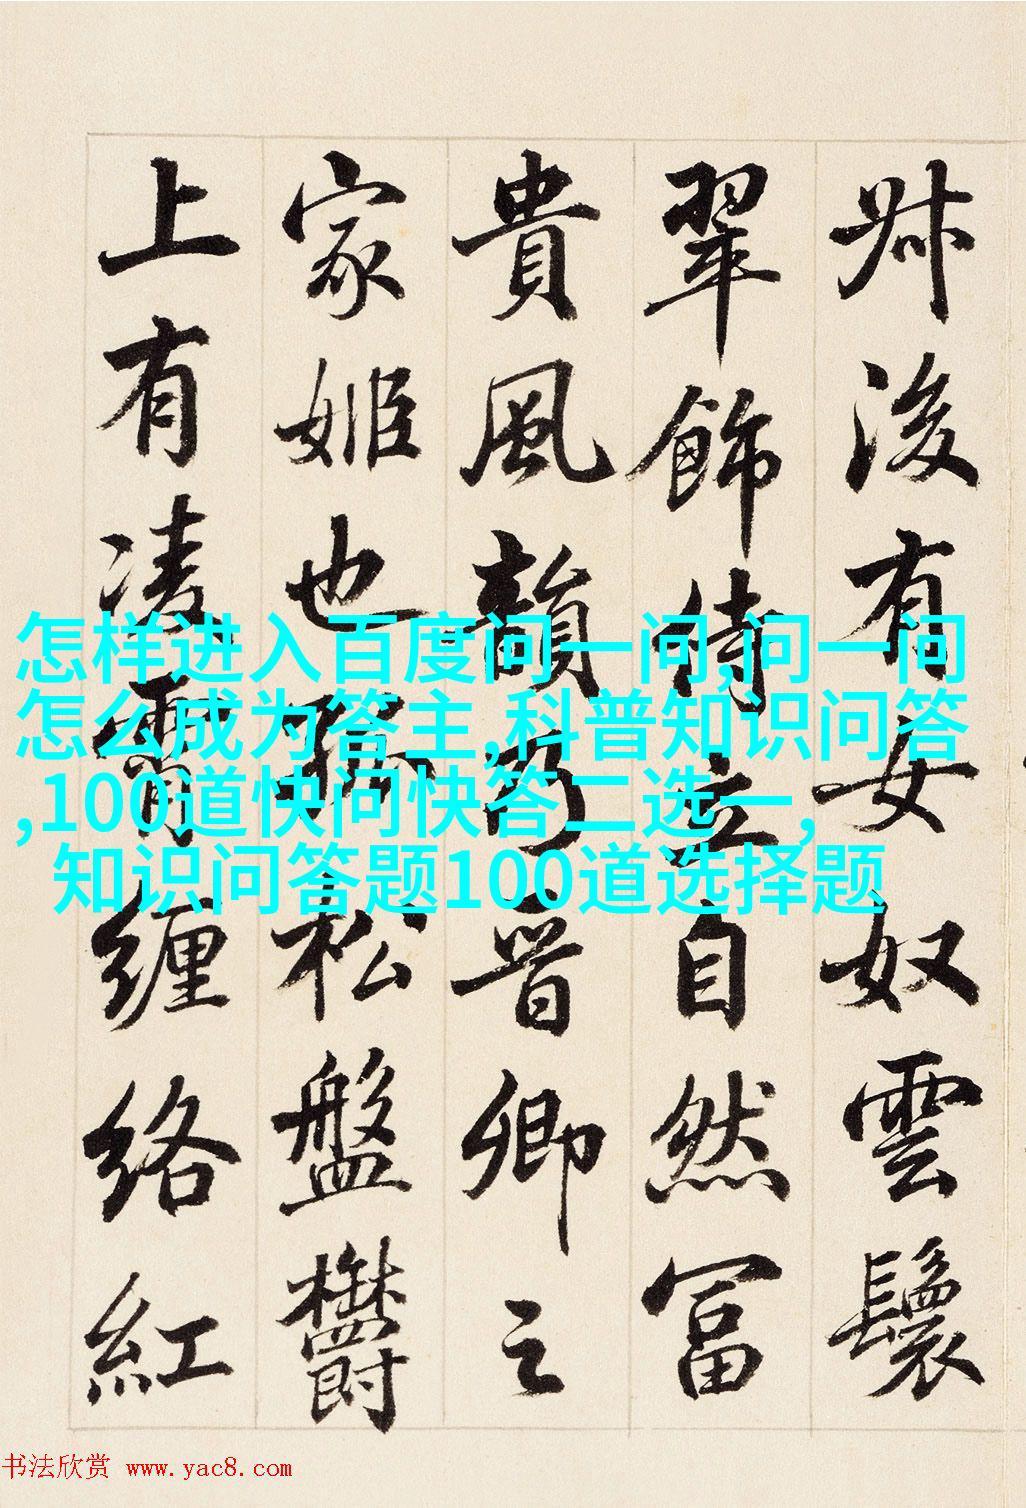 叔後有女奴雲鬟
翠飾侍立自然富
貴風韻乃晉卿之
家姬也孤松盤鬱
上有凌霄纏絡紅
怎样进入百度问一问,问一问
怎么成为答主,科普知识问答
,100道快问快答二选一,
知识问答题100道选择题
书法欣赏 www.yac8.com